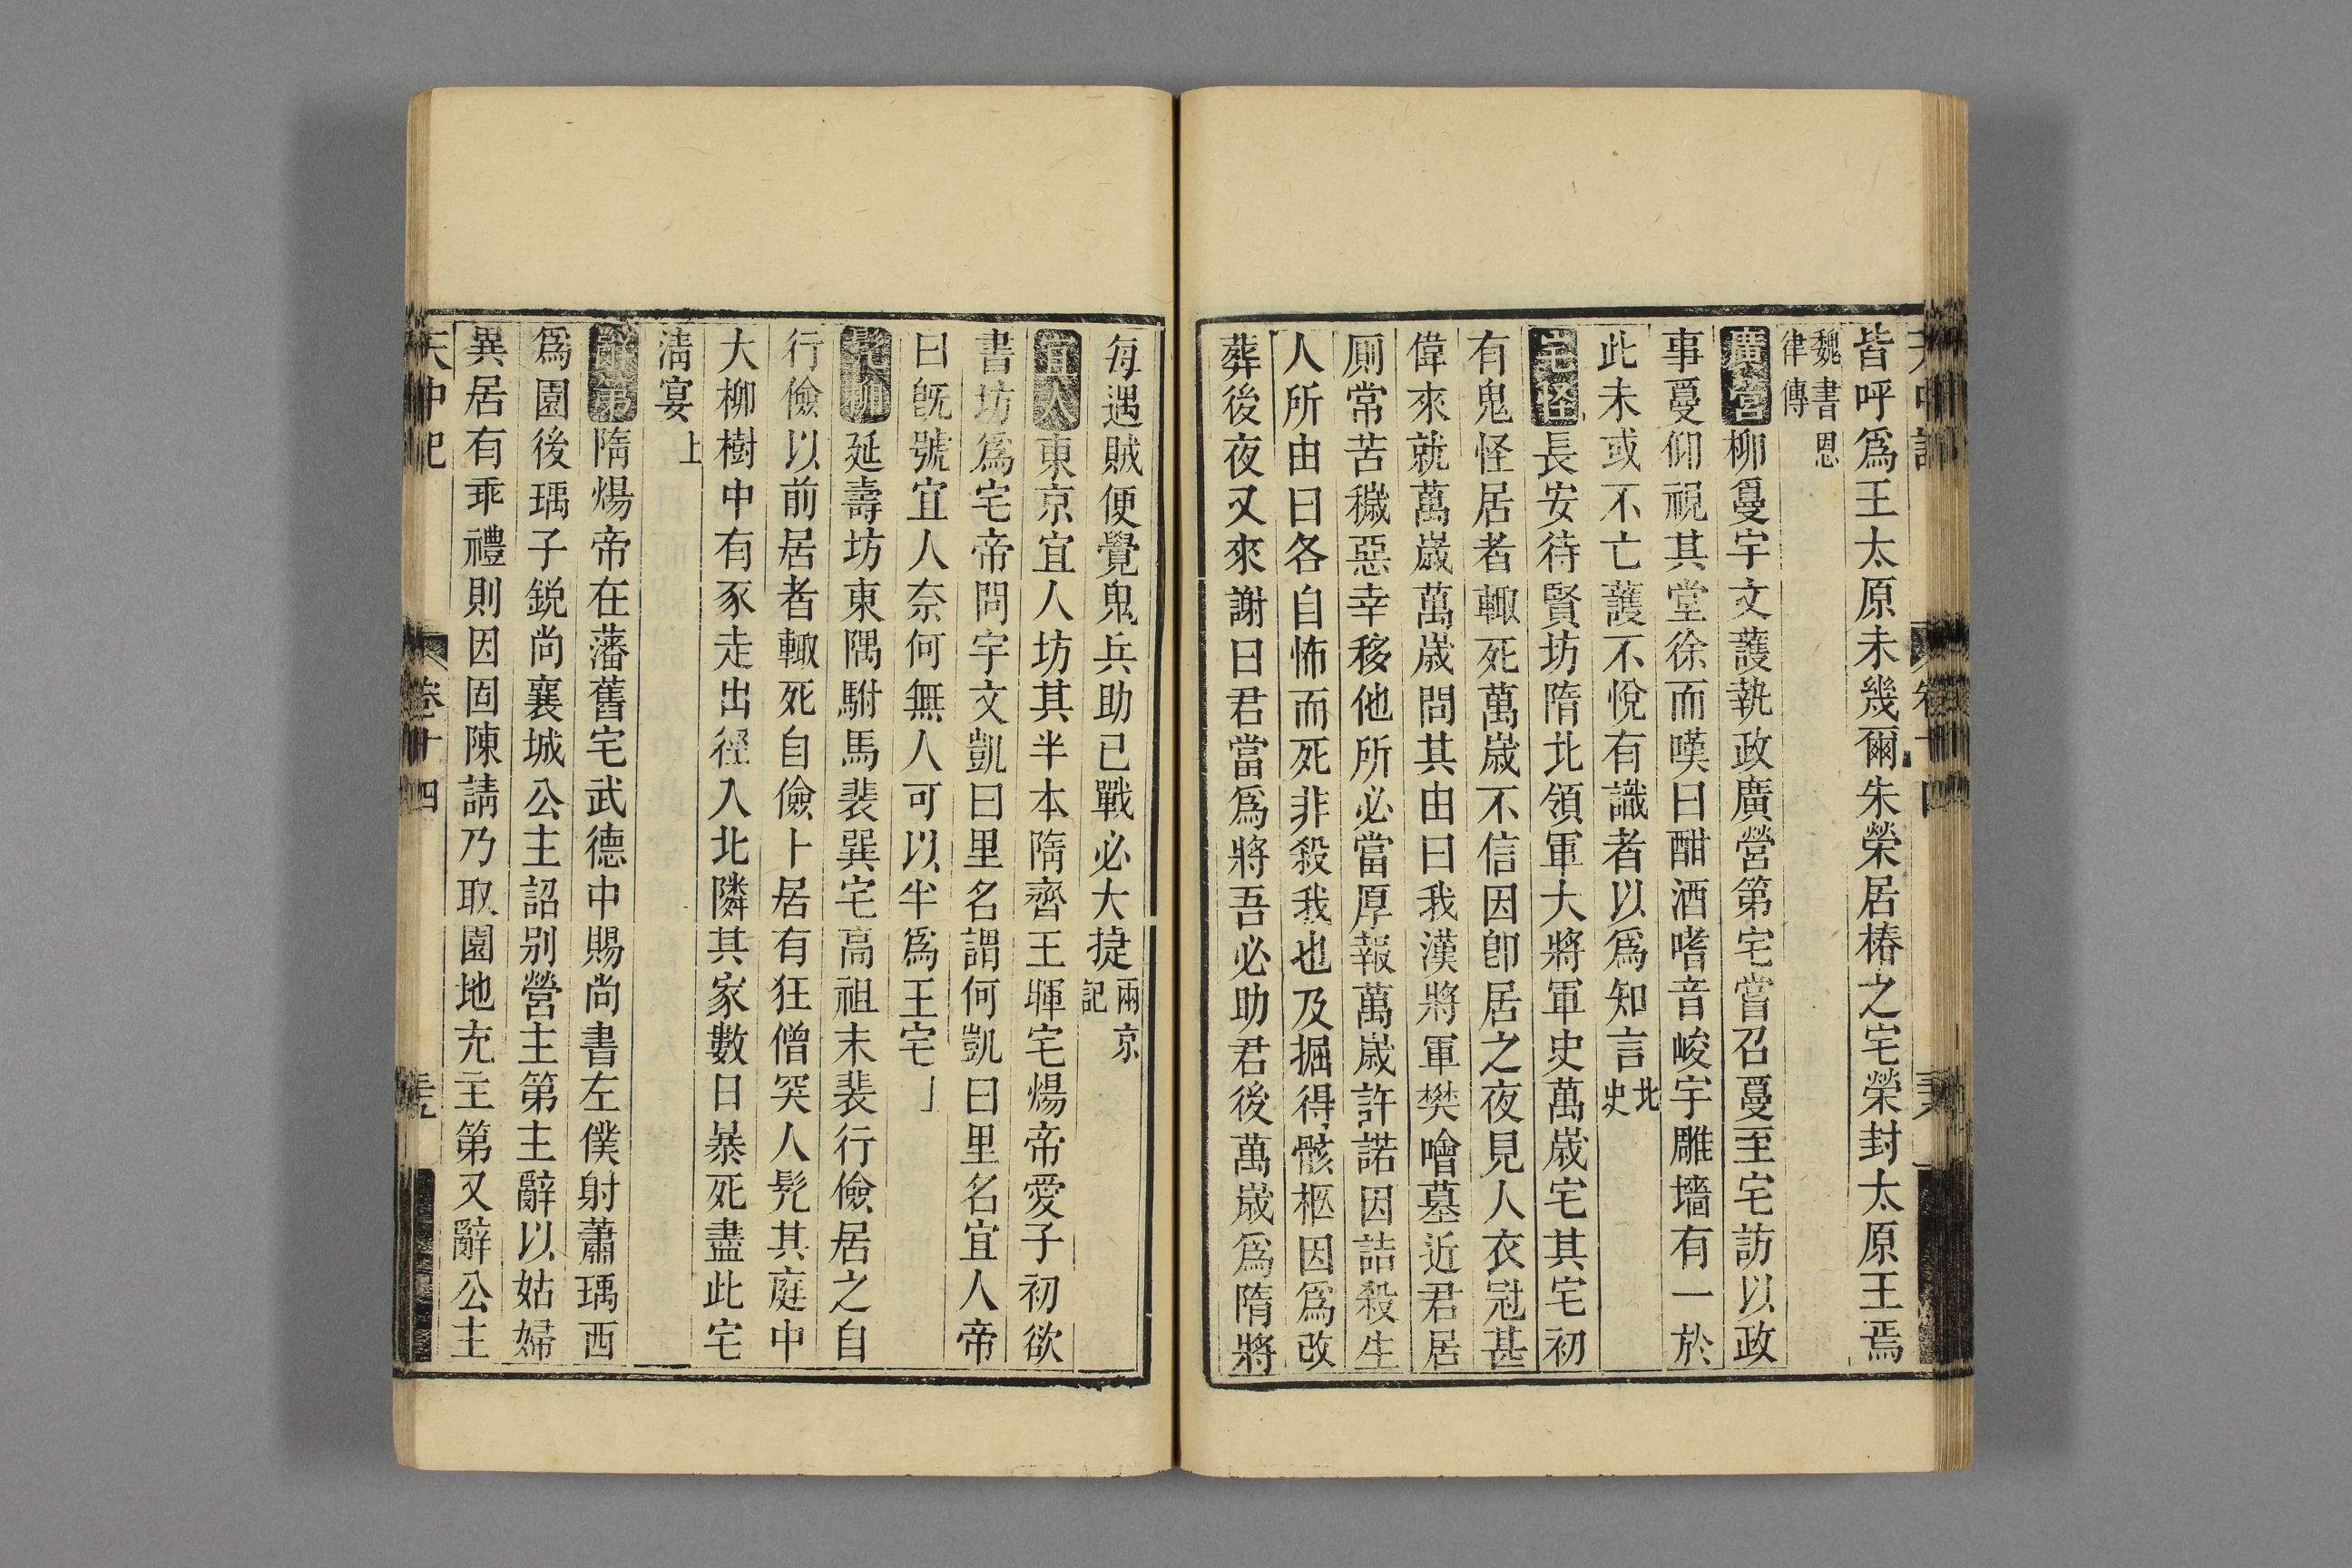 皆呼爲王太原未幾爾朱榮居椿之宅榮封太原王焉
魏書恩
律傳
廣營柳蔓宇文護執政廣營第宅嘗召蔓至宅訪以政
事蔓仰視其堂徐而嘆曰酣酒嗜音峻宇雕墻有一於
此未或不亡護不悅有識者以爲知言北史
宅怪長安待賢坊隋北領軍大將軍史萬歲宅其宅初
有鬼怪居者輙死萬歲不信因卽居之夜見人衣冠甚
偉來就萬歲萬歲問其由曰我漢將軍樊噲墓近君居
厠常苦穢惡幸移他所必當厚報萬歲許諾因詰殺生
人所由曰各自怖而死非殺我也及掘得骸柩因爲改
葬後夜又來謝曰君當爲將吾必助君後萬歲爲隋將
每遇賊便覺鬼兵助已戰必大捷兩京記
宜人東京宜人坊其半本隋齊王暉宅煬帝愛子初欲
書坊爲宅帝問宇文凱曰里名謂何凱曰里名宜人帝
曰旣號宜人奈何無人可以半爲王宅上
髠柳延壽坊東隅駙馬裴巽宅高祖末裴行儉居之自
行儉以前居者輙死自儉卜居有狂僧突人髠其庭中
大柳樹中有豕走出徑入北隣其家數日暴死盡此宅
淸宴上
辭第隋煬帝在藩舊宅武德中賜尚書左僕射蕭瑀西
爲園後瑀子銳尚襄城公主詔別營主第主辭以姑婦
異居有乖禮則因固陳請乃取園地充主第又辭公主
天中記 卷十四 三九